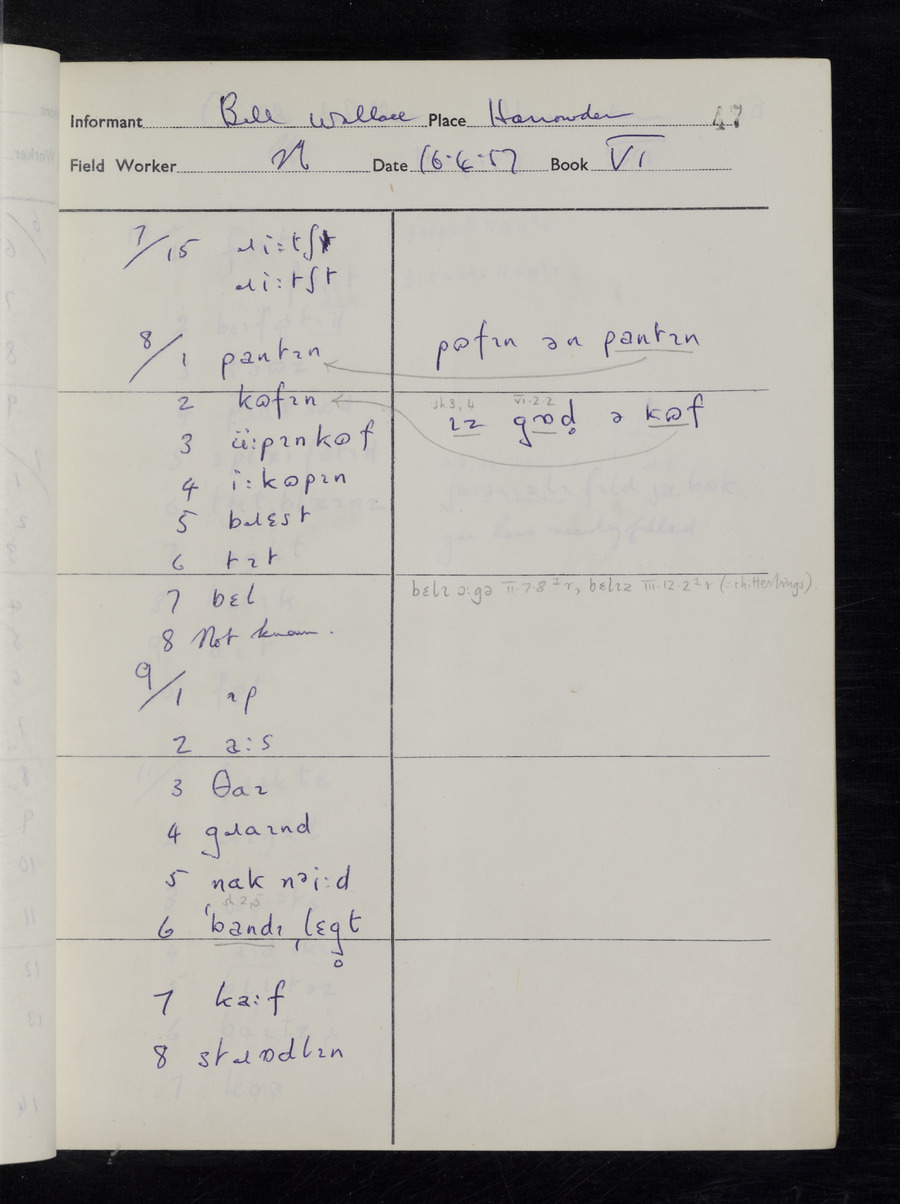 Informant Bill Wallace Place Harrowden 47
Field Worker N Date 16·4·57 Book VI
7/15 ɹiːtʃt
ɹiːtʃt
8/1 pantɪn pɷfɪn ən pantɪn
2 kɷfɪn sh 3, 4 VI·2·2
ɪz gɒd̥ ə kɷf
3 üːpɪnkɷf
4 iːkɷpɪn
5 bɹɛst
6 tɪt
7 bɛl bɛlɪ ɔːgə II·7·8 ², bɛlɪz III·12·2 ² (: chitterlings)
8 Not known.
9/1 ɪp
2 aːs
3 θaɪ
4 gɹaɪnd
5 nak nəiːd
sh 2,5
6 ˈbandɪ ˌlɛg̥t
7 kaːf
8 stɹɒdlɪn